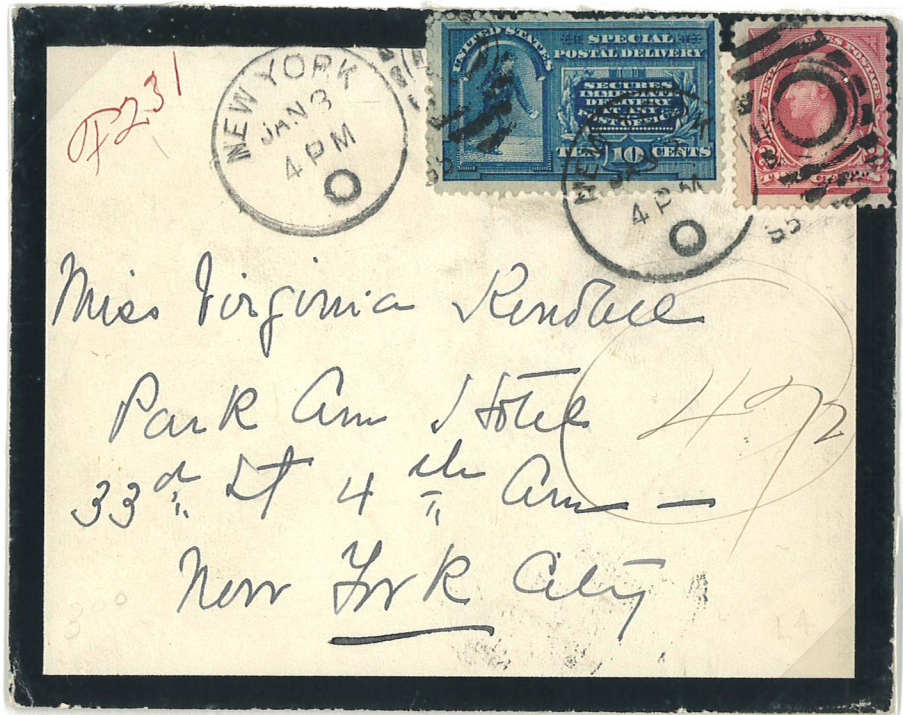 F231
NEW YORK
JAN 3
4 PM
O
UNITED STATES
SPECIAL
POSTAL DELIVERY
SECURES
IMMEDIATE
DELIVERY
AT ANY
POST OFFICE
TEN 10 CENTS
UNITED STATES POSTAGE
TWO CENTS
NEW
4 PM
O
Miss Virginia Kendall
Park Ave Hotel
33d St 4th Ave —
New York City